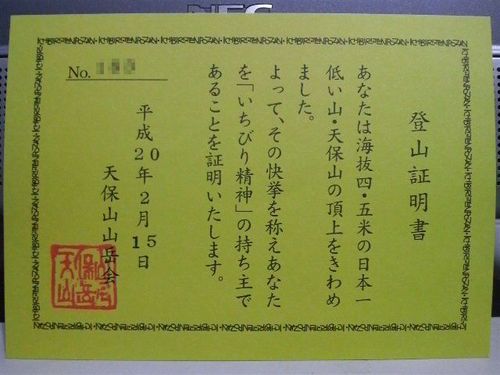 NEC
No.
登山証明書
あなたは海抜四・五米の日本一
低い山・天保山の頂上をきわめ
ました。
よって、その快挙を称えあなた
を「いちびり精神」の持ち主で
あることを証明いたします。
平成20年2月15日
天保山山岳会